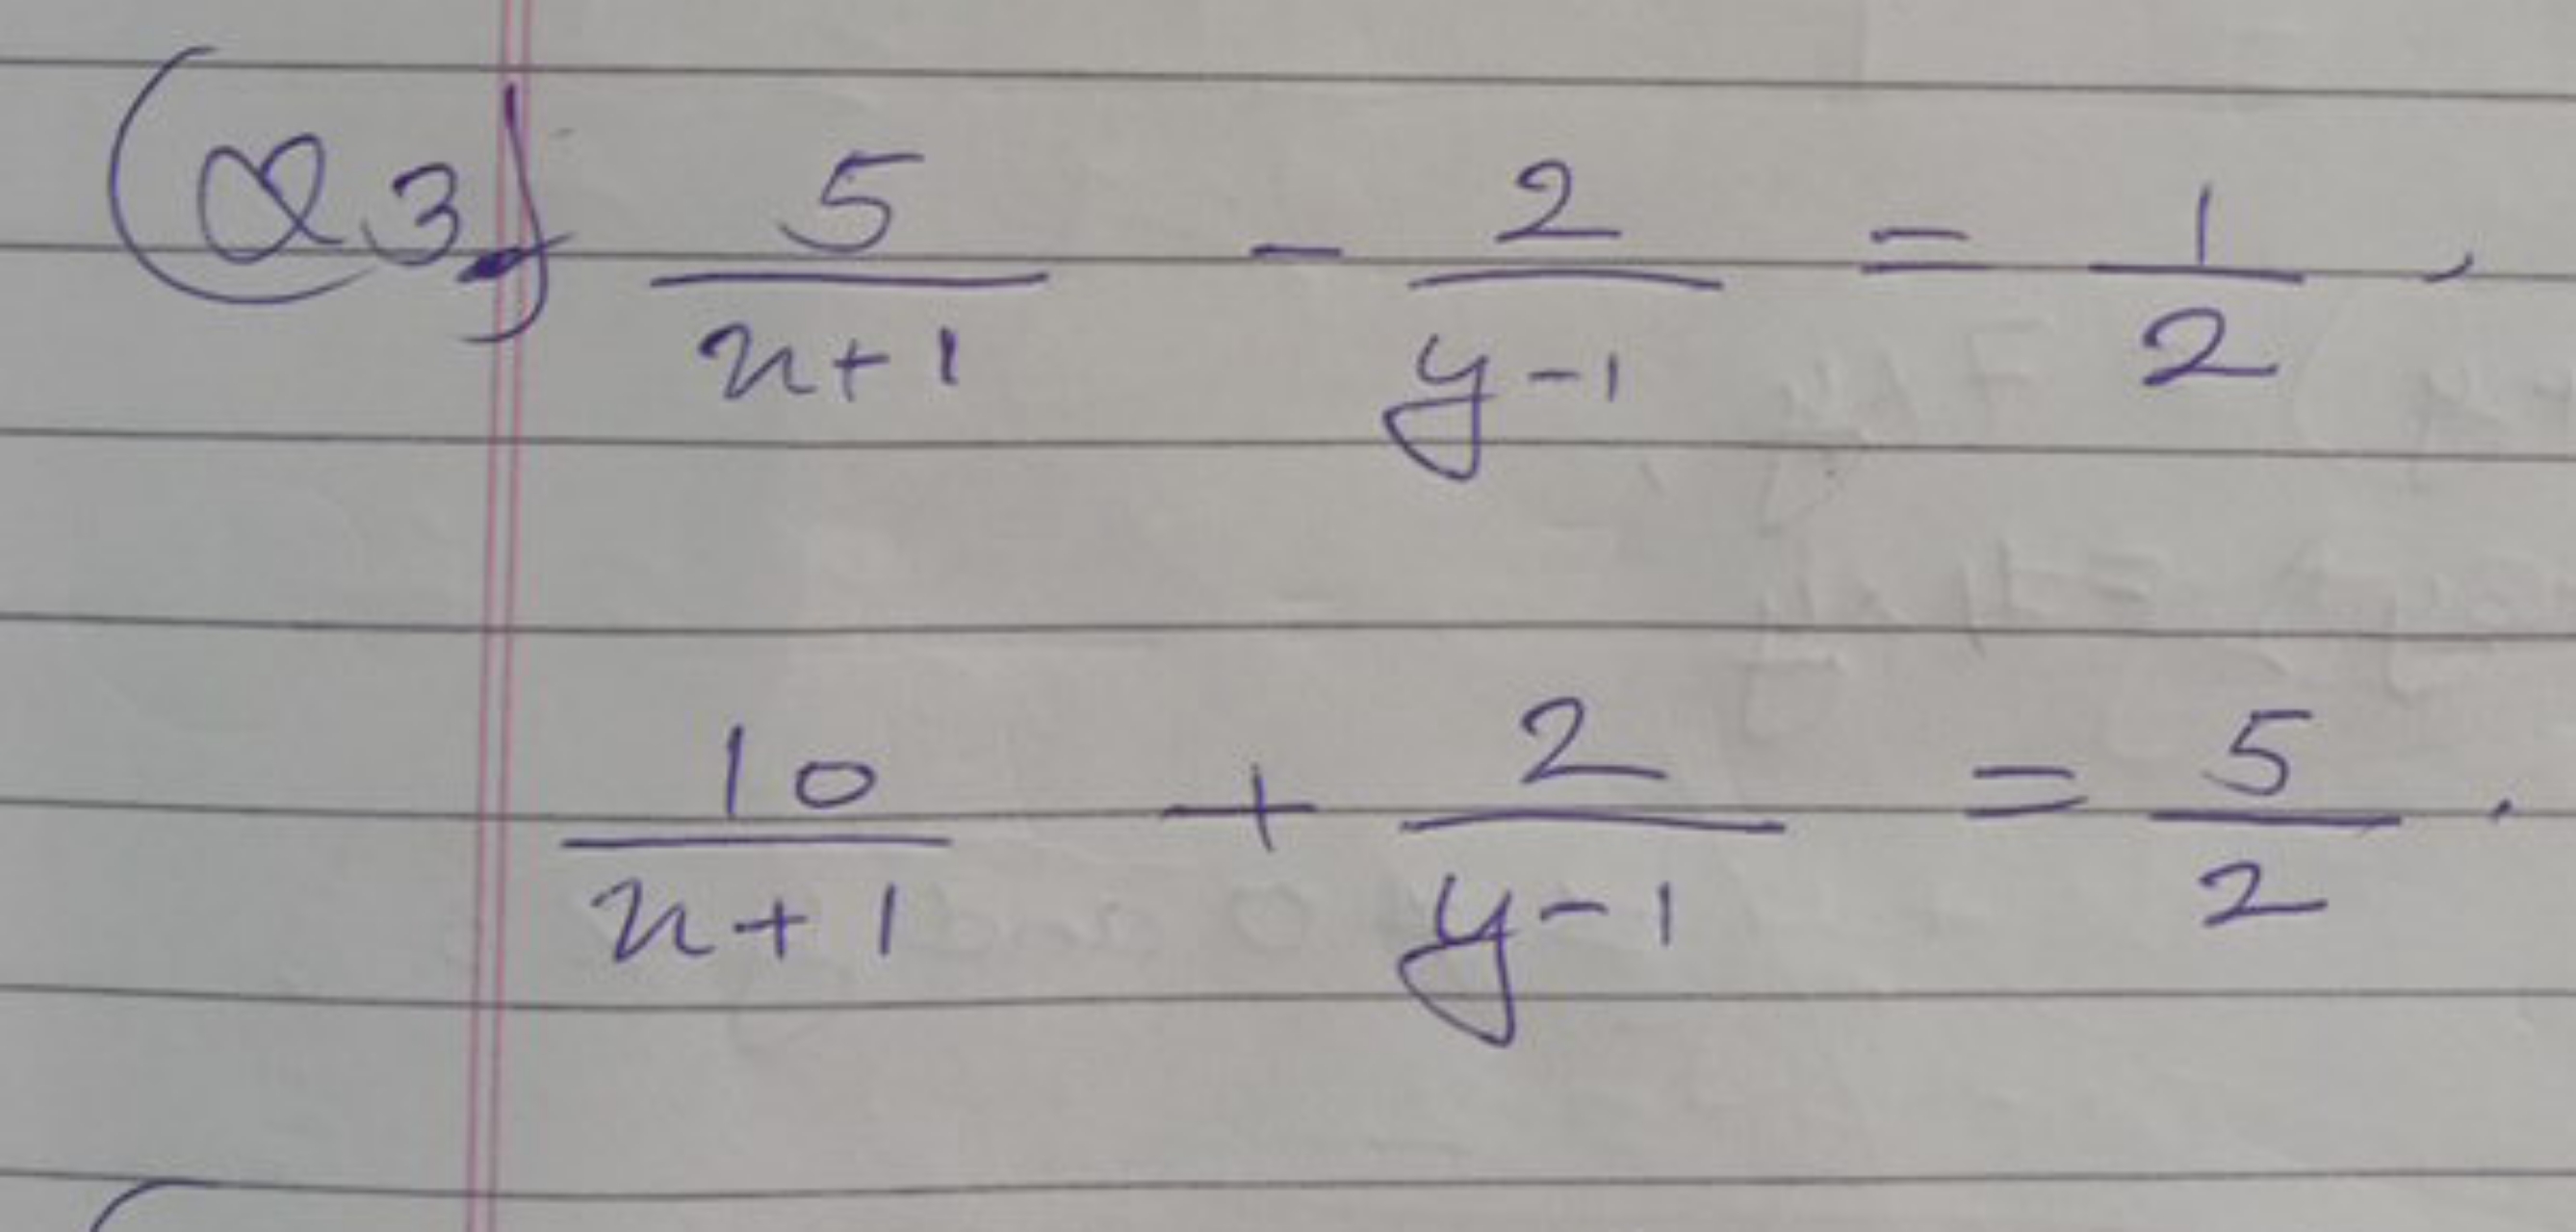 (Q3) 5/(x+1) - 2/(y-1) = 1/2,
10/(x+1) + 2/(y-1) = 5/2.